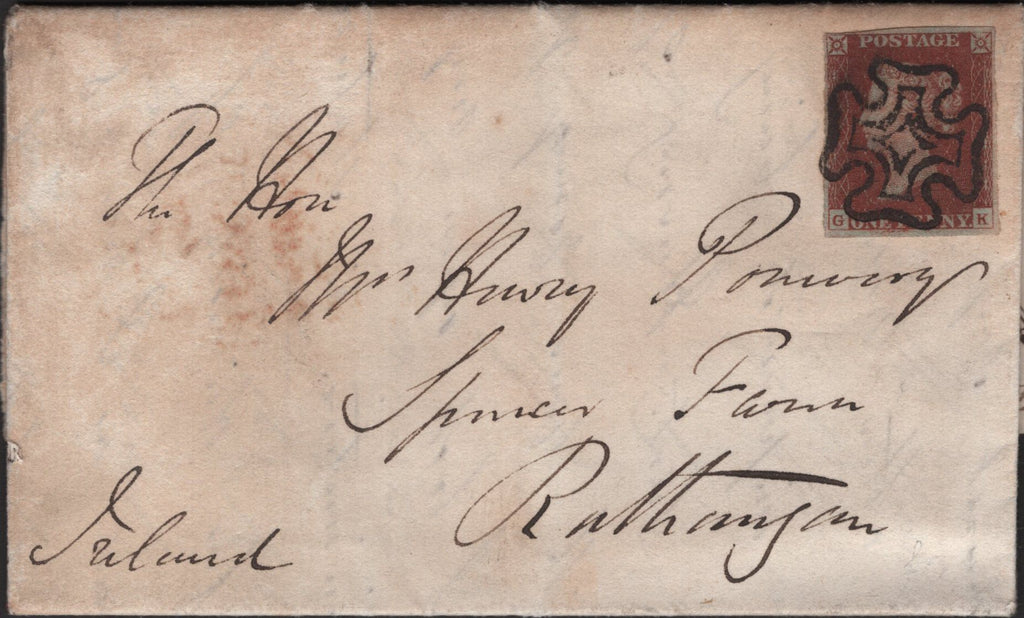 POSTAGE
G ONE PENNY K
The Hon
Mrs Henry Pomeroy
Spencer Farm
Rathangan
Ireland